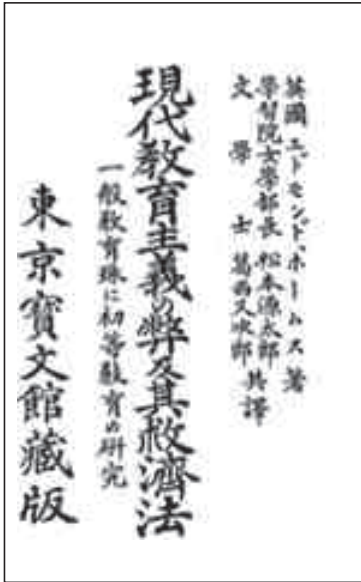 英國 エドモンド、ホームス 著
學習院女學部長 松本源太郎
文學士 葛西又次郎 共譯
現代教育主義の弊及其救濟法
一般教育殊に初等教育の研究
東京寳文館藏版